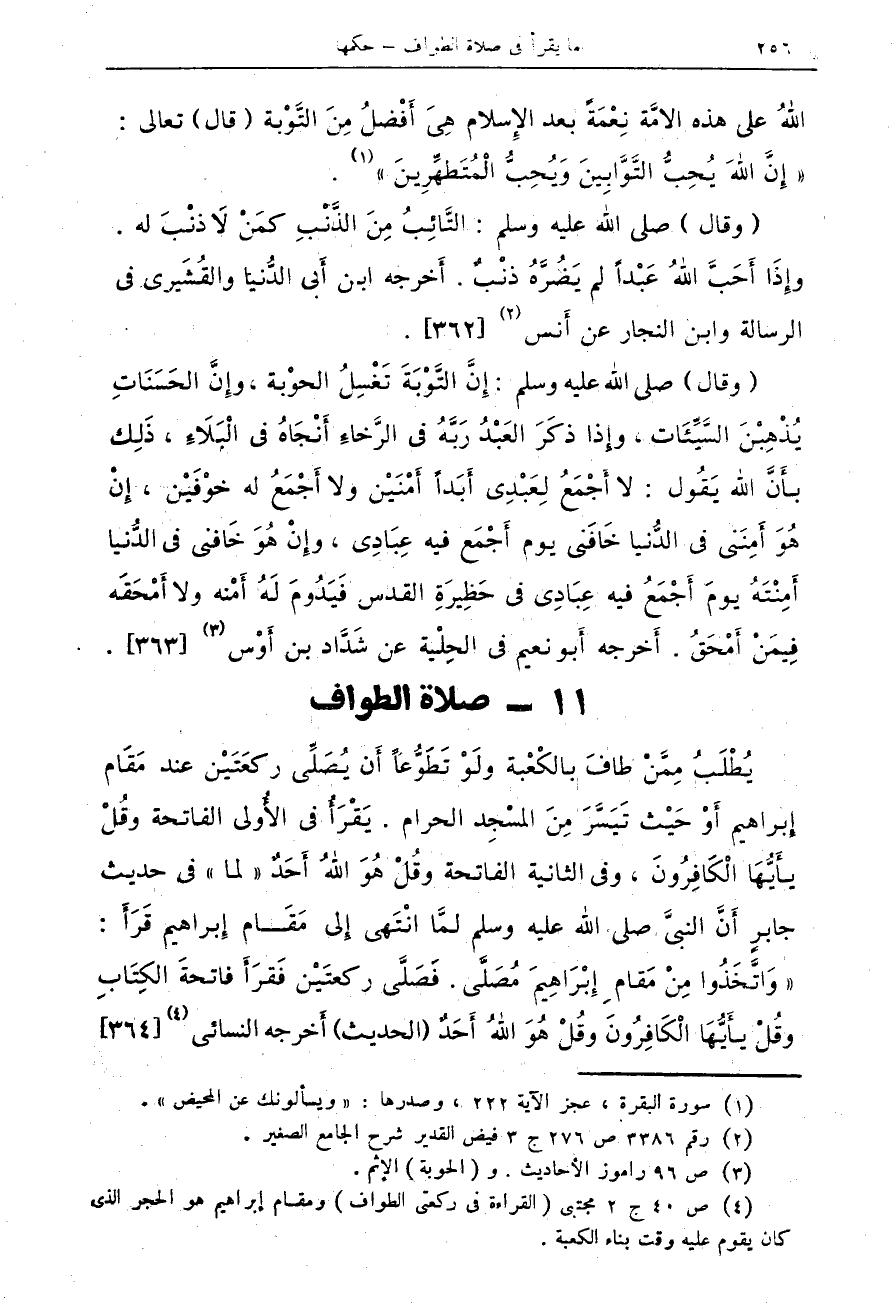 ٢٥٦ ما يقرأ فى صلاة الطواف – حكمها
اللهُ على هذه الامَّة نِعْمَةً بعد الإِسلام هِىَ أَفْضلُ مِنَ التَّوْبة ( قال ) تعالى :
« إِنَّ اللهَ يُحِبُّ التَّوَّابِينَ وَيُحِبُّ الْمُتَطَهِّرِينَ »(١) .
( وقال ) صلى الله عليه وسلم : التَّائِبُ مِنَ الذَّنْبِ كمَنْ لَا ذنْبَ له .
وإِذَا أَحَبَّ اللهُ عَبْداً لم يَضُرَّهُ ذنْبٌ . أخرجه ابن أَبى الدُّنيا والقُشَيرى فى
الرسالة وابن النجار عن أَنس(٢) [٣٦٢] .
( وقال ) صلى الله عليه وسلم : إِنَّ التَّوْبَةَ تَغْسِلُ الحوْبة ، وإِنَّ الحَسَنَاتِ
يُذْهِبْنَ السَّيِّئَات ، وإِذا ذكَرَ العَبْدُ رَبَّهُ فى الرَّخاءِ أَنْجَاهُ فى الْبَلَاءِ ، ذَلِك
بأَنَّ الله يَقُول : لا أَجْمَعُ لِعَبْدِى أَبَداً أَمْنَيْن ولا أَجْمَعُ له خوْفَيْن ، إِنْ
هُوَ أَمِنَنى فى الدُّنيا خَافَنى يوم أَجْمَع فيه عِبَادِى ، وإِنْ هُوَ خَافنى فى الدُّنيا
أَمِنْتَهُ يومَ أَجْمَعُ فيه عِبَادِى فى حَظِيرَةِ القدس فَيَدُومَ لَهُ أَمْنه ولا أَمْحَقه
فِيمَنْ أَمْحَقُ . أَخرجه أَبو نعيم فى الحِلْية عن شَدَّاد بن أَوْس(٣) [٣٦٣] .
١١ – صلاة الطواف
يُطْلَبُ مِمَّنْ طافَ بالكْعْبة ولَوْ تَطَوُّعاً أَن يُصَلِّى ركعَتَيْن عند مَقَام
إبراهيم أَوْ حَيْث تَيَسَّرَ مِنَ المسْجِد الحرام . يَقْرَأُ فى الأُولى الفاتحة وقُلْ
يأَيُّهَا الْكَافِرُونَ ، وفى الثانية الفاتحة وقُلْ هُوَ اللهُ أَحَدٌ « لما » فى حديث
جابرٍ أَنَّ النبىَّ صلى الله عليه وسلم لمَّا انْتَهى إِلى مَقَـام إِبراهيم قَرَأَ :
« وَاتَّخَذُوا مِنْ مَقام إِبْرَاهِيمَ مُصَلًّى . فَصَلَّى ركعتَيْن فَقرَأَ فاتحةَ الكِتَابِ
وقُلْ يأَيُّهَا الْكَافِرُونَ وقُلْ هُوَ اللهُ أَحَدٌ (الحديث) أَخرجه النسائى(٤) [٣٦٤]
(١) سورة البقرة ، عجز الآية ٢٢٢ ، وصدرها : « ويسألونك عن المحيض » .
(٢) رقم ٣٣٨٦ ص ٢٧٦ ج ٣ فيض القدير شرح الجامع الصغير .
(٣) ص ٩٦ راموز الأحاديث . و ( الحوبة ) الإثم .
(٤) ص ٤٠ ج ٢ مجتبى ( القراءة فى ركعتى الطواف ) ومقام إبراهيم هو الحجر الذى
كان يقوم عليه وقت بناء الكعبة .